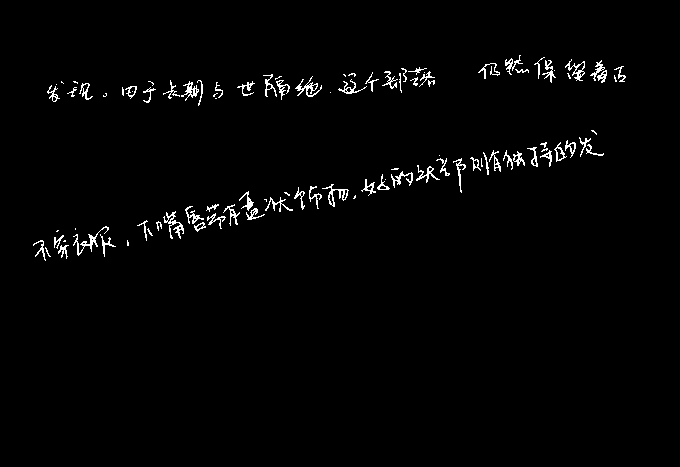 发现。由于长期与世隔绝,这个部落 仍然保留着古
不穿衣服,下嘴唇带有盖状饰物,女的头部则有独特的发